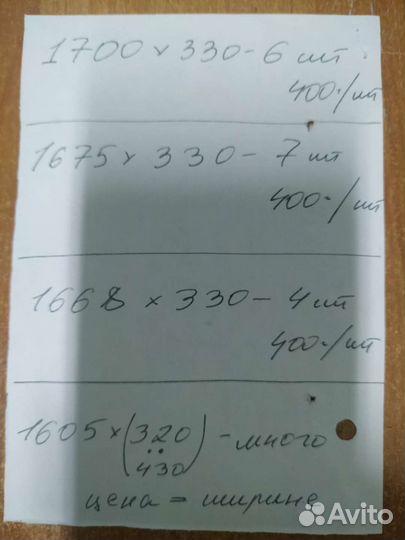 1700 x 330 - 6 шт
400·/шт
1675 x 330 - 7 шт
400·/шт
1668 x 330 - 4 шт
400·/шт
1605 x (320 ·· 430) - много
цена = ширине
Avito